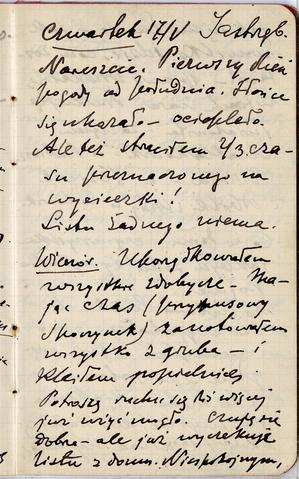 Czwartek 17/V Jastrzęb.
Nareszcie. Pierwszy dzień
pogody od południa. Słońce
się ukazało – ociepliło.
Ale też straciłem 2/3 cza-
su przeznaczonego na
wycieczki!
Listu żadnego niema.
Wieczór. Uporządkowałem
wszystkie zdobycze. Ma-
jąc czas (przymusowy
spoczynek) zanotowałem
wszystko z gruba – i
kleiłem popielnicę.
Potrafię ruszać się
już więcej
dobrze – ale już wyczekuję
listu z domu. Niespokojnym,